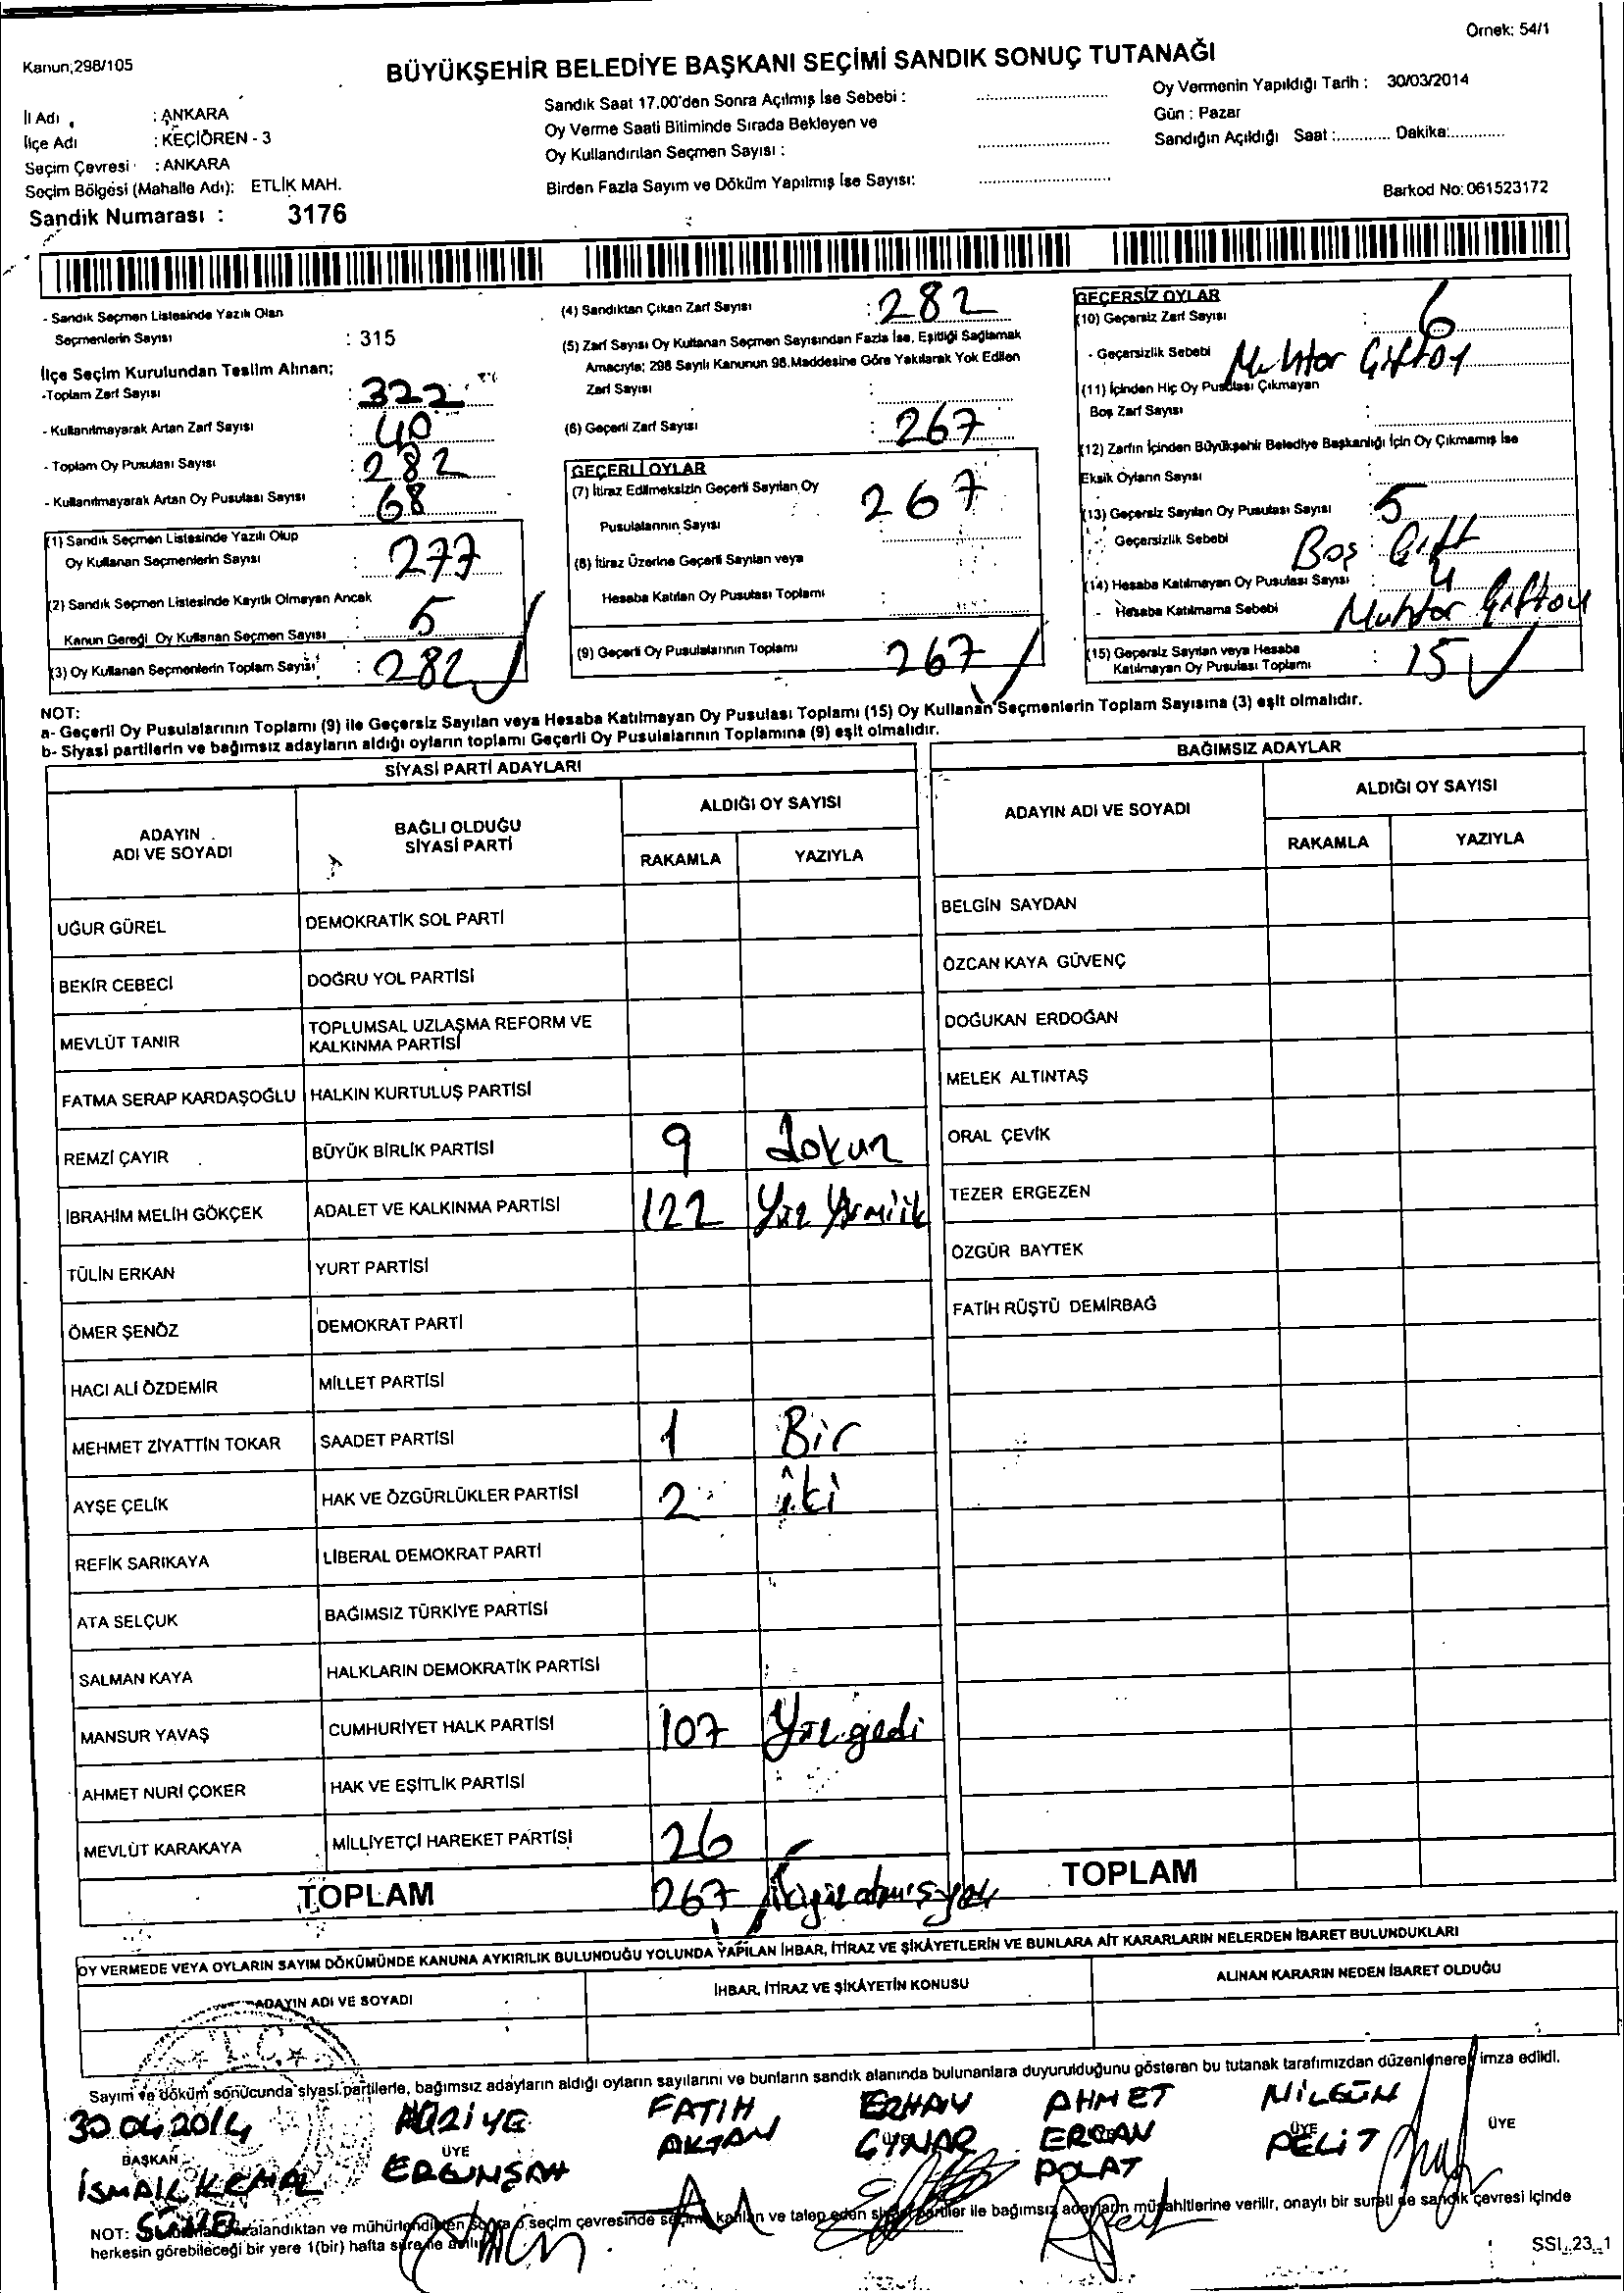 Örnek: 54/1
Kanun;298/105
BÜYÜKŞEHİR BELEDİYE BAŞKANI SEÇİMİ SANDIK SONUÇ TUTANAĞI
İl Adı : ANKARA
İlçe Adı : KEÇİÖREN - 3
Seçim Çevresi : ANKARA
Seçim Bölgesi (Mahalle Adı): ETLİK MAH.
Sandık Numarası : 3176
Sandık Saat 17.00'den Sonra Açılmış İse Sebebi :
Oy Verme Saati Bitiminde Sırada Bekleyen ve
Oy Kullandırılan Seçmen Sayısı :
Birden Fazla Sayım ve Döküm Yapılmış İse Sayısı:
Oy Vermenin Yapıldığı Tarih : 30/03/2014
Gün : Pazar
Sandığın Açıldığı Saat :............ Dakika:............
Barkod No: 061523172
- Sandık Seçmen Listesinde Yazılı Olan
Seçmenlerin Sayısı : 315
İlçe Seçim Kurulundan Teslim Alınan;
-Toplam Zarf Sayısı : 322
- Kullanılmayarak Artan Zarf Sayısı : 40
- Toplam Oy Pusulası Sayısı : 282
- Kullanılmayarak Artan Oy Pusulası Sayısı : 68
(1) Sandık Seçmen Listesinde Yazılı Olup
Oy Kullanan Seçmenlerin Sayısı : 277
(2) Sandık Seçmen Listesinde Kayıtlı Olmayan Ancak
Kanun Gereği Oy Kullanan Seçmen Sayısı : 5
(3) Oy Kullanan Seçmenlerin Toplam Sayısı : 282
(4) Sandıktan Çıkan Zarf Sayısı : 282
(5) Zarf Sayısı Oy Kullanan Seçmen Sayısından Fazla İse, Eşitliği Sağlamak
Amacıyla; 298 Sayılı Kanunun 98.Maddesine Göre Yakılarak Yok Edilen
Zarf Sayısı :
(6) Geçerli Zarf Sayısı : 267
GEÇERLİ OYLAR
(7) İtiraz Edilmeksizin Geçerli Sayılan Oy
Pusulalarının Sayısı 267
(8) İtiraz Üzerine Geçerli Sayılan veya
Hesaba Katılan Oy Pusulası Toplamı :
(9) Geçerli Oy Pusulalarının Toplamı 267
GEÇERSİZ OYLAR
(10) Geçersiz Zarf Sayısı : 6
- Geçersizlik Sebebi Muhtar Çiftoy
(11) İçinden Hiç Oy Pusulası Çıkmayan
Boş Zarf Sayısı :
(12) Zarfın İçinden Büyükşehir Belediye Başkanlığı İçin Oy Çıkmamış İse
Eksik Oyların Sayısı :
(13) Geçersiz Sayılan Oy Pusulası Sayısı : 5
- Geçersizlik Sebebi Boş Çift
(14) Hesaba Katılmayan Oy Pusulası Sayısı : 4
- Hesaba Katılmama Sebebi Muhtar Çiftoy
(15) Geçersiz Sayılan veya Hesaba
Katılmayan Oy Pusulası Toplamı : 15
NOT:
a- Geçerli Oy Pusulalarının Toplamı (9) ile Geçersiz Sayılan veya Hesaba Katılmayan Oy Pusulası Toplamı (15) Oy Kullanan Seçmenlerin Toplam Sayısına (3) eşit olmalıdır.
b- Siyasi partilerin ve bağımsız adayların aldığı oyların toplamı Geçerli Oy Pusulalarının Toplamına (9) eşit olmalıdır.
SİYASİ PARTİ ADAYLARI
ADAYIN ADI VE SOYADI
BAĞLI OLDUĞU SİYASİ PARTİ
ALDIĞI OY SAYISI
RAKAMLA YAZIYLA
UĞUR GÜREL DEMOKRATİK SOL PARTİ
BEKİR CEBECİ DOĞRU YOL PARTİSİ
MEVLÜT TANIR TOPLUMSAL UZLAŞMA REFORM VE KALKINMA PARTİSİ
FATMA SERAP KARDAŞOĞLU HALKIN KURTULUŞ PARTİSİ
REMZİ ÇAYIR BÜYÜK BİRLİK PARTİSİ 9 dokuz
İBRAHİM MELİH GÖKÇEK ADALET VE KALKINMA PARTİSİ 122 Yüz Yirmiik
TÜLİN ERKAN YURT PARTİSİ
ÖMER ŞENÖZ DEMOKRAT PARTİ
HACI ALİ ÖZDEMİR MİLLET PARTİSİ
MEHMET ZİYATTİN TOKAR SAADET PARTİSİ 1 Bir
AYŞE ÇELİK HAK VE ÖZGÜRLÜKLER PARTİSİ 2 iki
REFİK SARIKAYA LİBERAL DEMOKRAT PARTİ
ATA SELÇUK BAĞIMSIZ TÜRKİYE PARTİSİ
SALMAN KAYA HALKLARIN DEMOKRATİK PARTİSİ
MANSUR YAVAŞ CUMHURİYET HALK PARTİSİ 107 Yüz yedi
AHMET NURİ ÇOKER HAK VE EŞİTLİK PARTİSİ
MEVLÜT KARAKAYA MİLLİYETÇİ HAREKET PARTİSİ 26
TOPLAM 267
BAĞIMSIZ ADAYLAR
ADAYIN ADI VE SOYADI
ALDIĞI OY SAYISI
RAKAMLA YAZIYLA
BELGİN SAYDAN
ÖZCAN KAYA GÜVENÇ
DOĞUKAN ERDOĞAN
MELEK ALTINTAŞ
ORAL ÇEVİK
TEZER ERGEZEN
ÖZGÜR BAYTEK
FATİH RÜŞTÜ DEMİRBAĞ
TOPLAM
OY VERMEDE VEYA OYLARIN SAYIM DÖKÜMÜNDE KANUNA AYKIRILIK BULUNDUĞU YOLUNDA YAPILAN İHBAR, İTİRAZ VE ŞİKÂYETLERİN VE BUNLARA AİT KARARLARIN NELERDEN İBARET BULUNDUKLARI
ADAYIN ADI VE SOYADI
İHBAR, İTİRAZ VE ŞİKÂYETİN KONUSU
ALINAN KARARIN NEDEN İBARET OLDUĞU
Sayım ve döküm sonucunda siyasi partilerle, bağımsız adayların aldığı oyların sayılarını ve bunların sandık alanında bulunanlara duyurulduğunu gösteren bu tutanak tarafımızdan düzenlenerek imza edildi.
30.04.2014
BAŞKAN
İSMAİL KEMAL
ÜYE
FATİH AKTAN
ERHAN
AHMET ERCAN POLAT
NİLGÜN PELİT
ÜYE
ÜYE
seçim çevresinde seçime katılan ve talep eden siyasi partiler ile bağımsız adayların müşahitlerine verilir, onaylı bir sureti de sandık çevresi içinde
herkesin görebileceği bir yere 1(bir) hafta süre ile asılır.
SSI_23_1